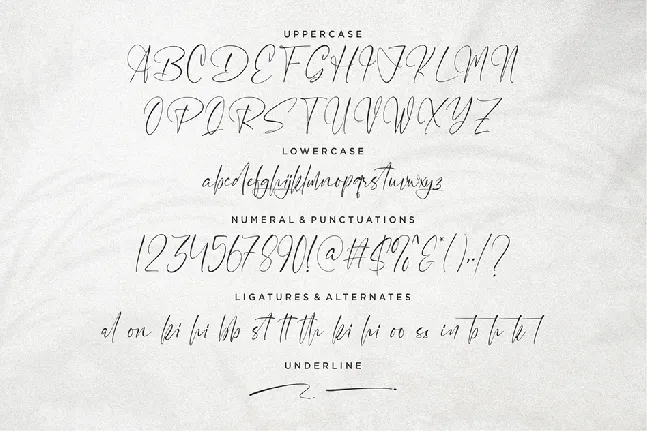 UPPERCASE
ABCDEFGHIJKLMN
OPQRSTUVWXYZ
LOWERCASE
abcdefghijklmnopqrstuvwxyz
NUMERAL & PUNCTUATIONS
1234567890!@#$%^&*()../?
LIGATURES & ALTERNATES
at on ki hi bb st tt th ki hi oo ss in b h k l
UNDERLINE